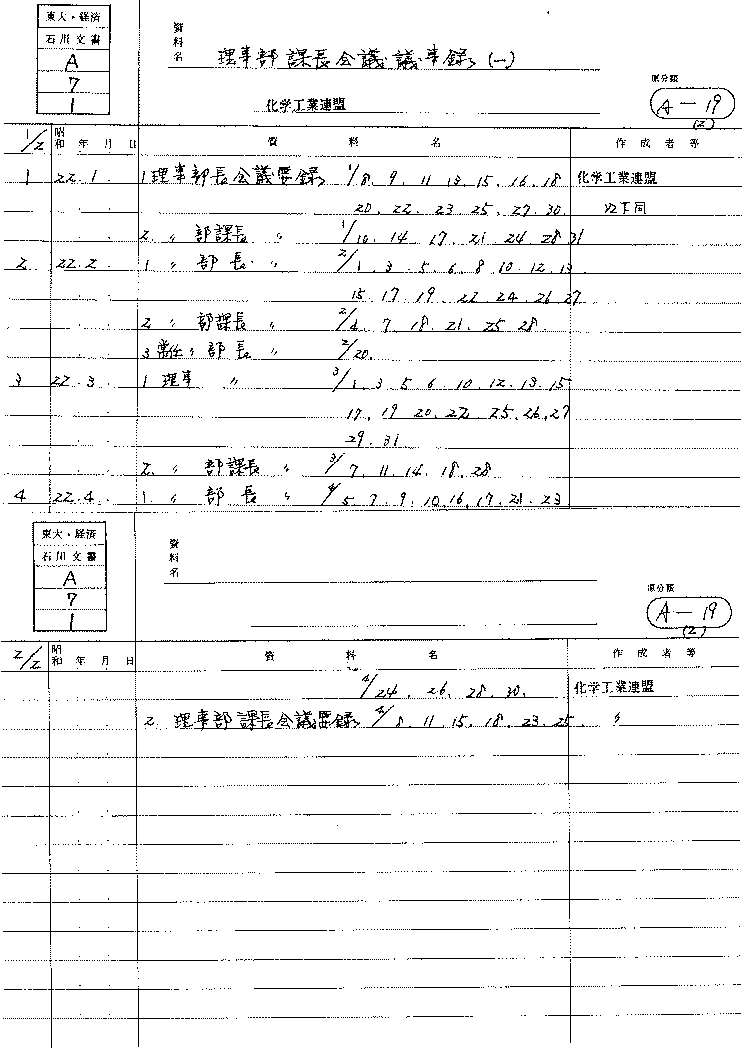 東大・経済
石川文書
A
7
1
資料名 理事部課長会議議事録(一)
化学工業連盟
原分類
A-19
(2)
1/2 昭和 年 月 日 資 料 名 作 成 者 等
1 22.1. 1 理事部長会議要録 1/8. 9. 11 13. 15. 16. 18 化学工業連盟
20. 22. 23. 25. 27. 30. 以下同
2. 〃 部課長 〃 1/10. 14. 17. 21. 24. 28 31
2 22.2 1 〃 部長. 〃 2/1. 3. 5. 6. 8. 10. 12. 13.
15. 17. 19. 22. 24. 26. 27
2 〃 部課長 〃 2/4. 7. 18. 21. 25. 28
3 常任〃 部長 〃 2/20.
3 22.3 1 理事 〃 3/1. 3 5 6. 10. 12. 13. 15
17. 19 20. 22. 25. 26. 27
29. 31
2. 〃 部課長 〃 3/7. 11. 14. 18. 28
4 22.4. 1 〃 部長 〃 4/5. 7. 9. 10. 16. 17. 21. 23
東大・経済
石川文書
A
7
1
資料名
原分類
A-19
(2)
2/2 昭和 年 月 日 資 料 名 作 成 者 等
4/24. 26. 28. 30. 化学工業連盟
2. 理事部課長会議要録 4/8. 11. 15. 18. 23. 25. 〃